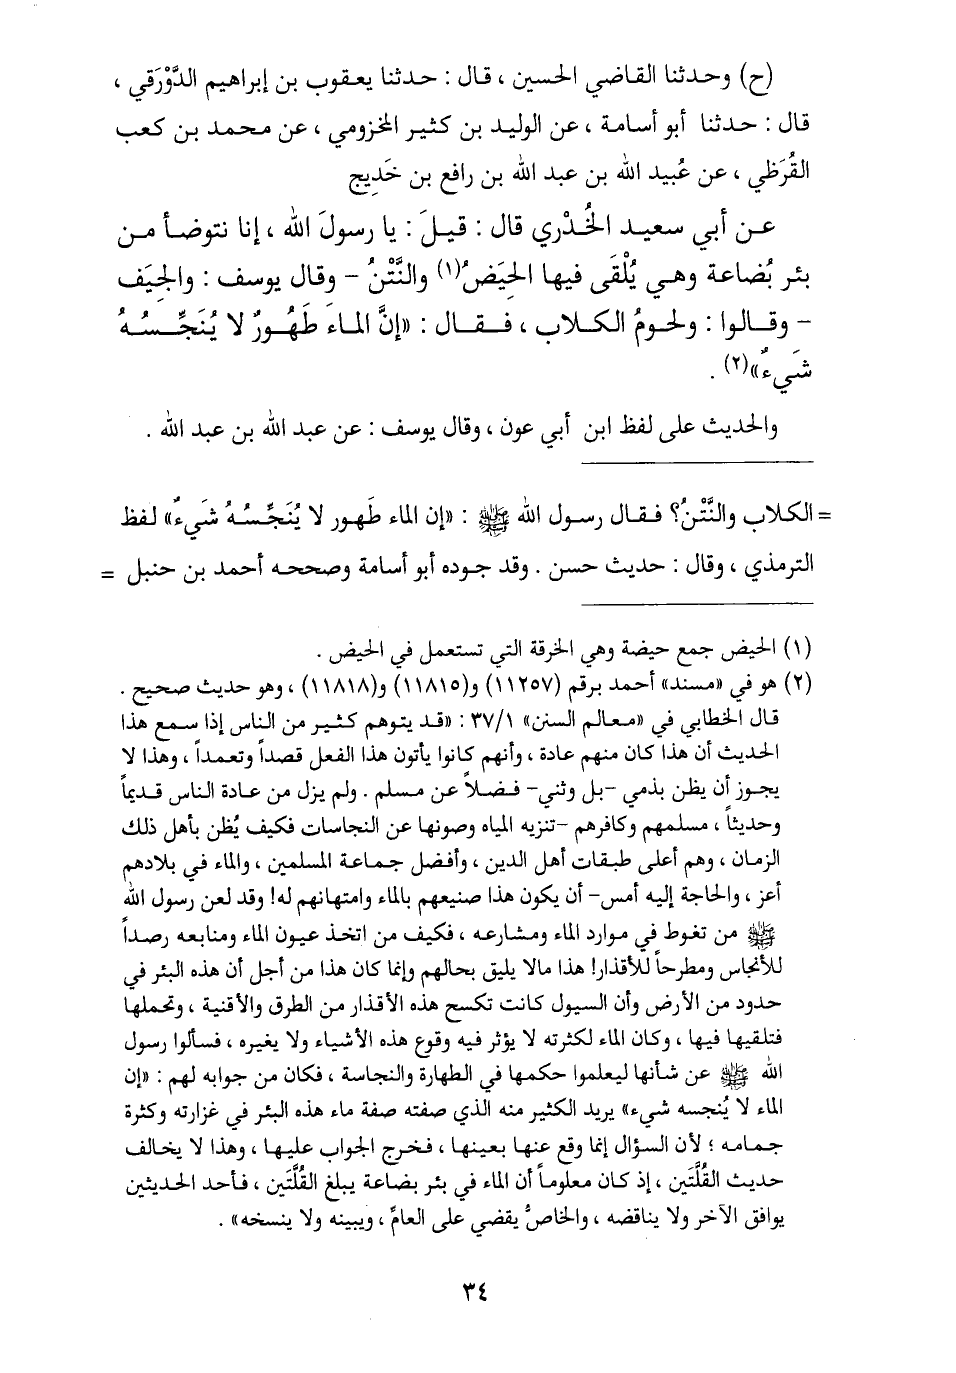 (ح) وحدثنا القاضي الحسين ، قال : حدثنا يعقوب بن إبراهيم الدَّوْرَقي ،
قال : حدثنا أبو أسامة ، عن الوليد بن كثير المخزومي ، عن محمد بن كعب
القُرَظي ، عن عُبيد الله بن عبد الله بن رافع بن خَديج
عن أبي سعيد الخُدْري قال : قيلَ : يا رسولَ الله ، إنا نتوضأ من
بئر بُضاعة وهي يُلْقَى فيها الحِيَضُ(١) والنَّتْنُ – وقال يوسف : والجِيَف
– وقالوا : ولحومُ الكلاب ، فقال : «إنَّ الماءَ طَهُورٌ لا يُنَجِّسُهُ
شَيءٌ»(٢) .
والحديث على لفظ ابن أبي عون ، وقال يوسف : عن عبد الله بن عبد الله .
= الكلاب والنَّتْنُ؟ فقال رسول الله ﷺ : «إن الماء طَهور لا يُنَجِّسُهُ شَيءٌ» لفظ
الترمذي ، وقال : حديث حسن . وقد جوده أبو أسامة وصححه أحمد بن حنبل =
(١) الحيض جمع حيضة وهي الخرقة التي تستعمل في الحيض .
(٢) هو في «مسند» أحمد برقم (١١٢٥٧) و(١١٨١٥) و(١١٨١٨) ، وهو حديث صحيح .
قال الخطابي في «معالم السنن» ٣٧/١ : «قد يتوهم كثير من الناس إذا سمع هذا
الحديث أن هذا كان منهم عادة ، وأنهم كانوا يأتون هذا الفعل قصداً وتعمداً ، وهذا لا
يجوز أن يظن بذمي –بل وثني– فضلاً عن مسلم . ولم يزل من عادة الناس قديماً
وحديثاً ، مسلمهم وكافرهم –تنزيه المياه وصونها عن النجاسات فكيف يُظن بأهل ذلك
الزمان ، وهم أعلى طبقات أهل الدين ، وأفضل جماعة المسلمين ، والماء في بلادهم
أعز ، والحاجة إليه أمس– أن يكون هذا صنيعهم بالماء وامتهانهم له! وقد لعن رسول الله
ﷺ من تغوط في موارد الماء ومشارعه ، فكيف من اتخذ عيون الماء ومنابعه رصداً
للأنجاس ومطرحاً للأقذار! هذا مالا يليق بحالهم وإنما كان هذا من أجل أن هذه البئر في
حدود من الأرض وأن السيول كانت تكسح هذه الأقذار من الطرق والأفنية ، وتحملها
فتلقيها فيها ، وكان الماء لكثرته لا يؤثر فيه وقوع هذه الأشياء ولا يغيره ، فسألوا رسول
الله ﷺ عن شأنها ليعلموا حكمها في الطهارة والنجاسة ، فكان من جوابه لهم : «إن
الماء لا يُنجسه شيء» يريد الكثير منه الذي صفته صفة ماء هذه البئر في غزارته وكثرة
جمامه ؛ لأن السؤال إنما وقع عنها بعينها ، فخرج الجواب عليها ، وهذا لا يخالف
حديث القُلَّتَين ، إذ كان معلوماً أن الماء في بئر بضاعة يبلغ القُلَّتَين ، فأحد الحديثين
يوافق الآخر ولا يناقضه ، والخاصُّ يقضي على العامِّ ، ويبينه ولا ينسخه» .
٣٤